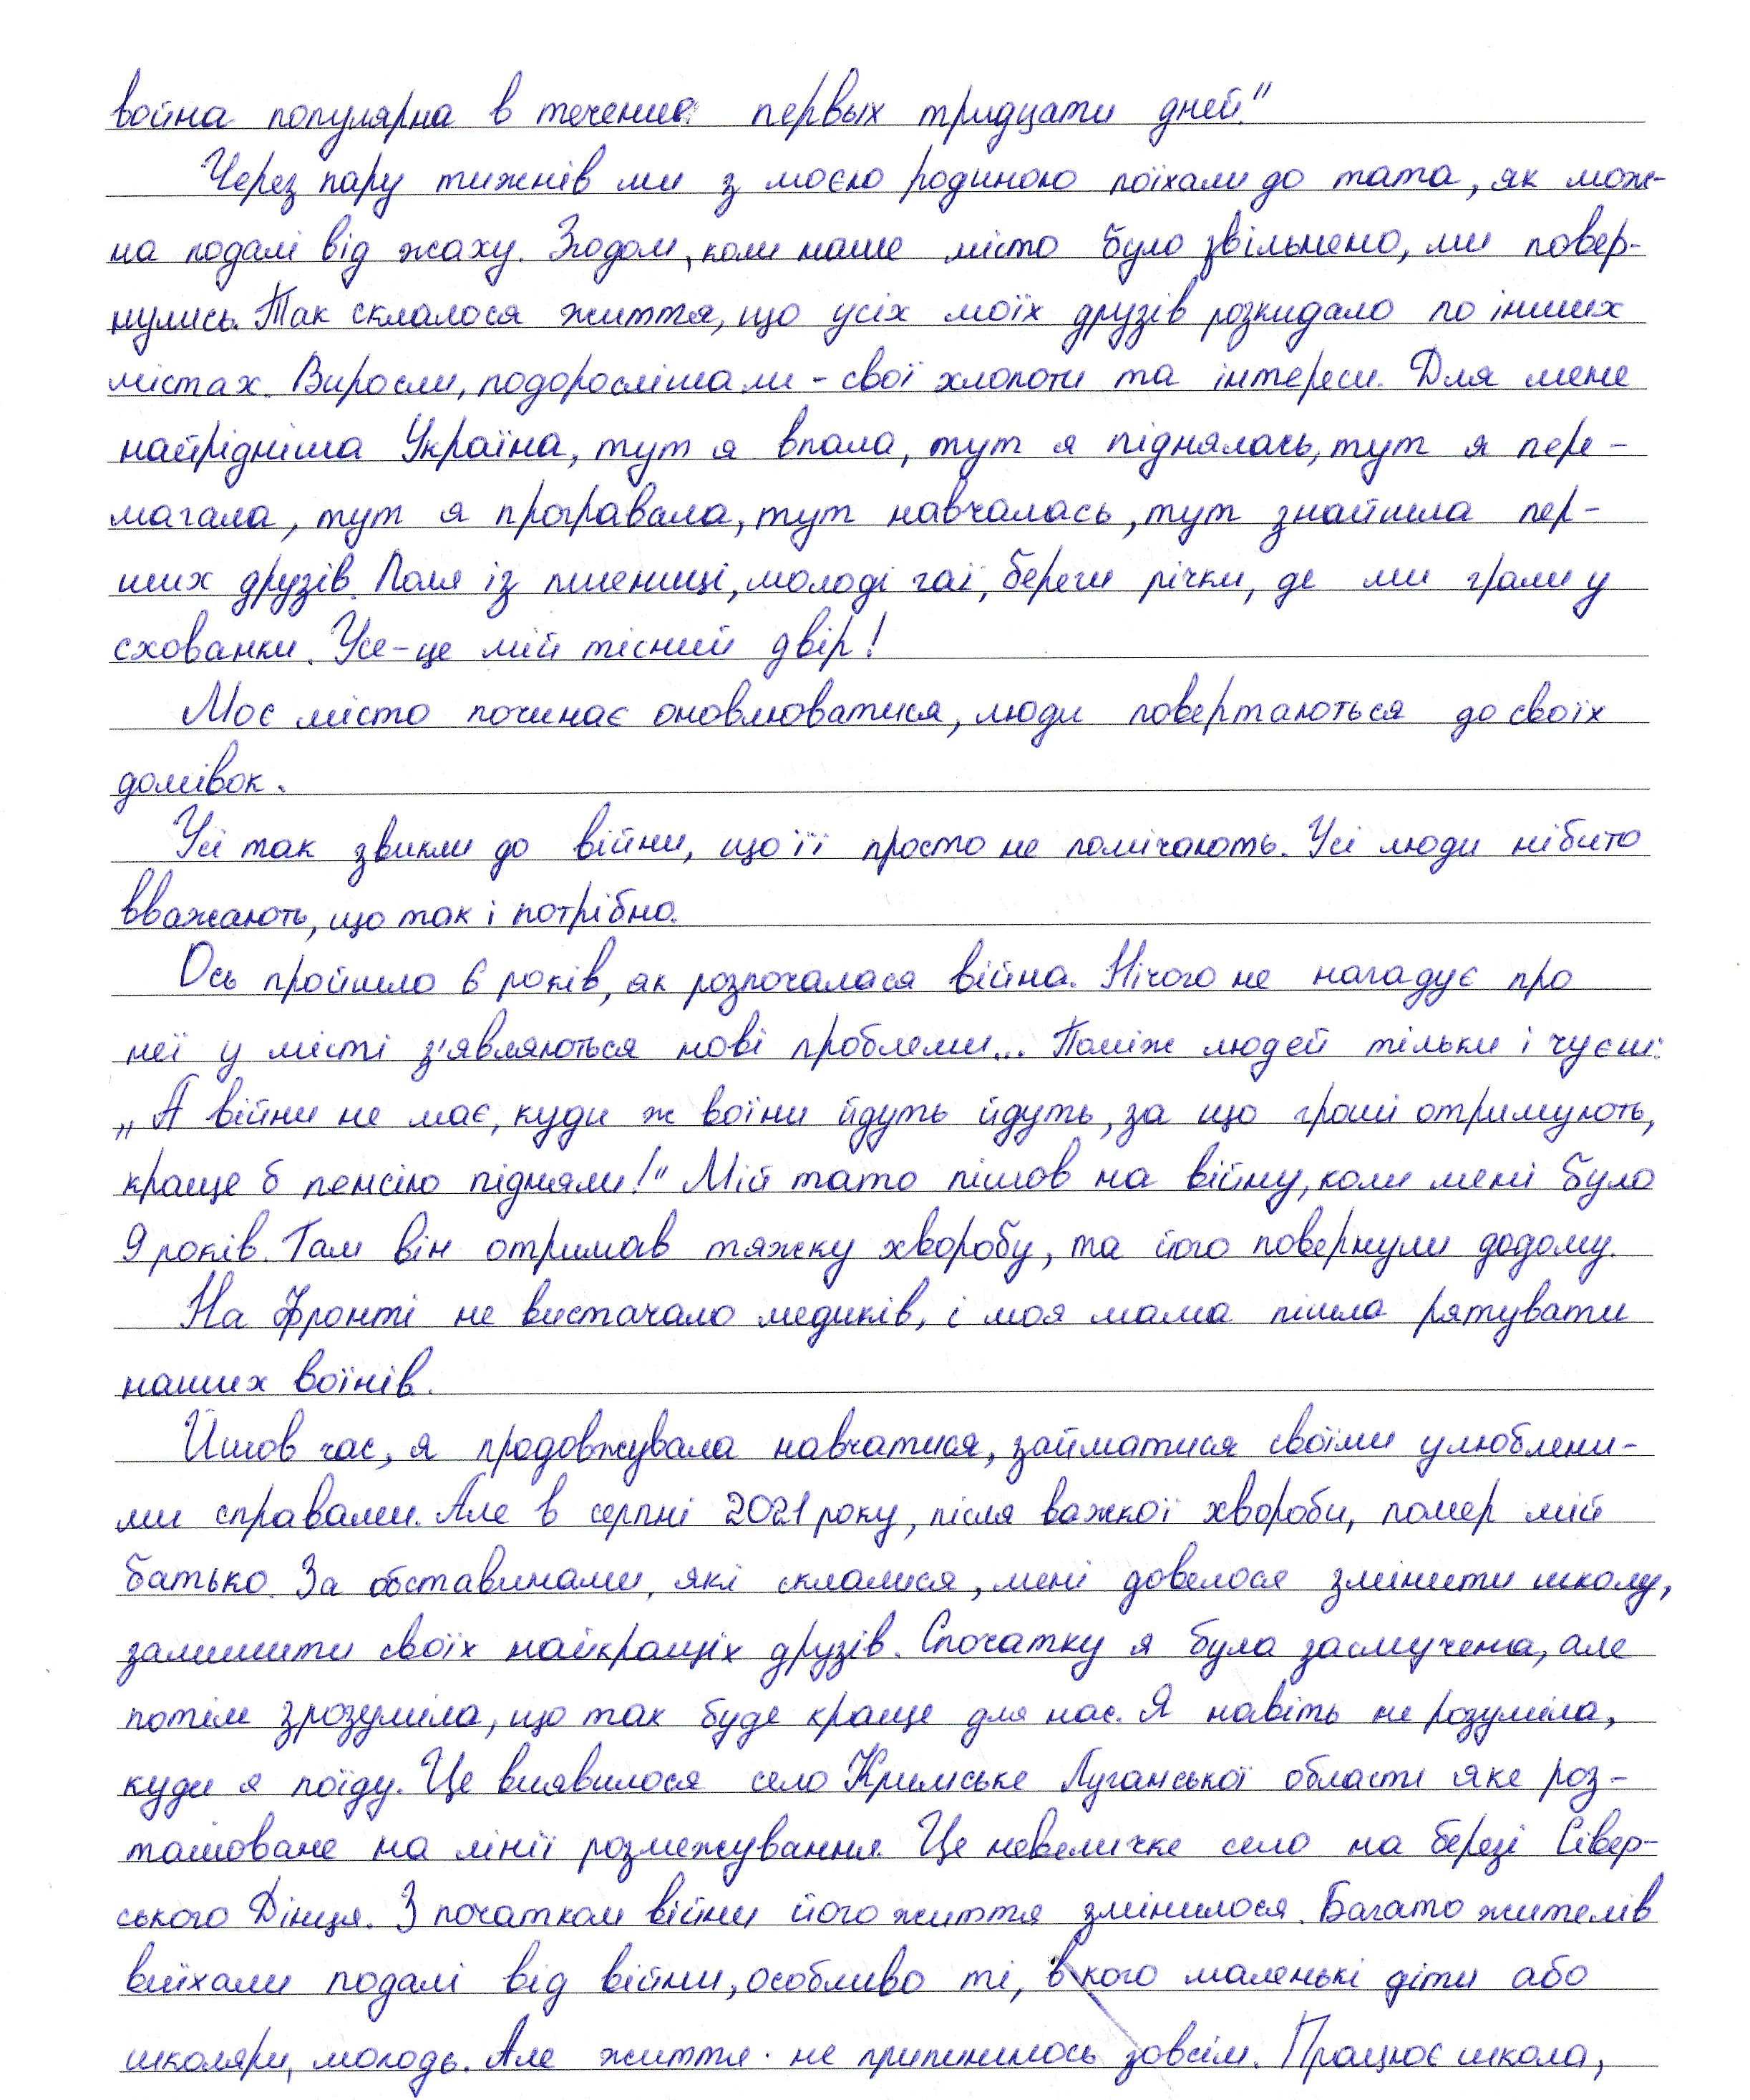 война популярна в течение первых тридцати дней."
Через пару тижнів ми з моєю родиною поїхали до тата, як мож-
на подалі від жаху. Згодом, коли наше місто було звільнено, ми повер-
нулись. Так склалося життя, що усіх моїх друзів розкидало по інших
містах. Виросли, подорослішали - свої хлопоти та інтереси. Для мене
найрідніша Україна, тут я впала, тут я піднялась, тут я пере-
магала, тут я програвала, тут навчалась, тут знайшла пер-
ших друзів. Поля із пшениці, молоді гаї, береги річки, де ми грали у
схованки. Усе - це мій тісний двір!
Моє місто починає оновлюватися, люди повертаються до своїх
домівок.
Усі так звикли до війни, що її просто не помічають. Усі люди нібито
вважають, що так і потрібно.
Ось пройшло 6 років, як розпочалася війна. Нічого не нагадує про
неї у місті з'являються нові проблеми... Поміж людей тільки і чуєш:
„А війни не має, куди ж воїни йдуть йдуть, за що гроші отримують,
краще б пенсію підняли!" Мій тато пішов на війну, коли мені було
9 років. Там він отримав тяжку хворобу, та його повернули додому.
На фронті не вистачало медиків, і моя мама пішла рятувати
наших воїнів.
Йшов час, я продовжувала навчатися, займатися своїми улюблени-
ми справами. Але в серпні 2021 року, після важкої хвороби, помер мій
батько. За обставинами, які склалися, мені довелося змінити школу,
залишити своїх найкращіх друзів. Спочатку я була засмучена, але
потім зрозуміла, що так буде краще для нас. Я навіть не розуміла,
куди я поїду. Це виявилося село Кримське Луганської області яке роз-
ташоване на лінії розмежування. Це невеличке село на березі Сівер-
ського Дінця. З початком війни його життя змінилося. Багато жителів
виїхали подалі від війни, особливо ті, в кого маленькі діти або
школярі, молодь. Але життя не припинилось зовсім. Працює школа,